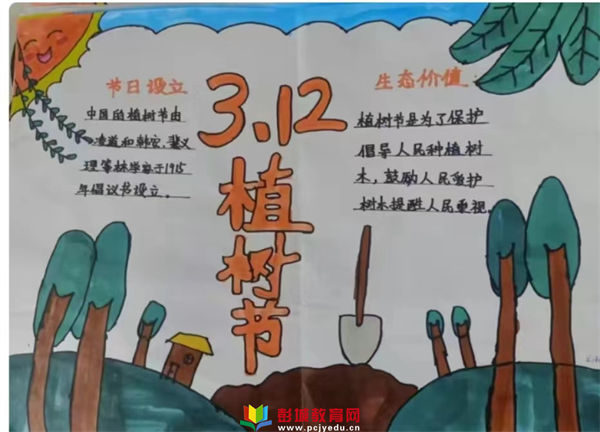 节日设立
中国的植树节由
凌道和韩安、裴义
理等林学家于1915
年倡议书设立。
3.12
植
树
节
生态价值:
植树节是为了保护
倡导人民种植树
木,鼓励人民爱护
树木提醒人民重视。
彭城教育网
www.pcjyedu.cn